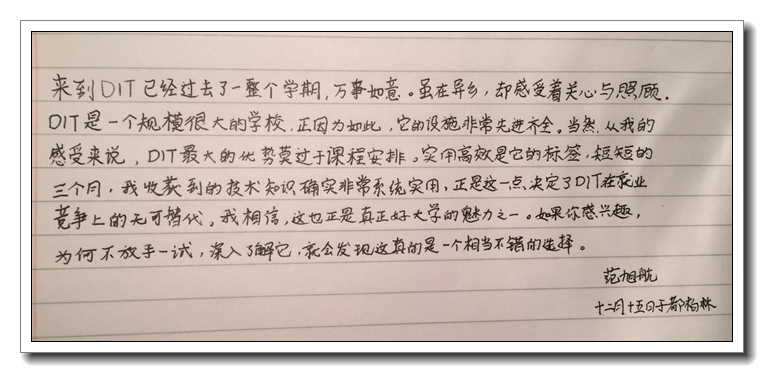 来到DIT已经过去了一整个学期,万事如意。虽在异乡,却感受着关心与照顾.
DIT是一个规模很大的学校.正因为如此,它的设施非常先进齐全。当然,从我的
感受来说,DIT最大的优势莫过于课程安排。实用高效是它的标签,短短的
三个月,我收获到的技术知识确实非常系统实用,正是这一点.决定了DIT在就业
竞争上的无可替代。我相信,这也正是真正好大学的魅力之一。如果你感兴趣,
为何不放手一试,深入了解它,就会发现这真的是一个相当不错的选择。
范旭航
十二月十五日于都柏林